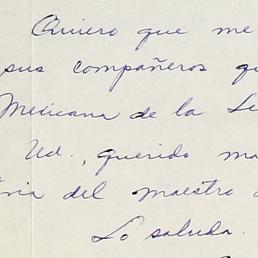 Quiero que me
sus compañeros
Mexicana de la
Ud., querido
del maestro
Lo saluda.